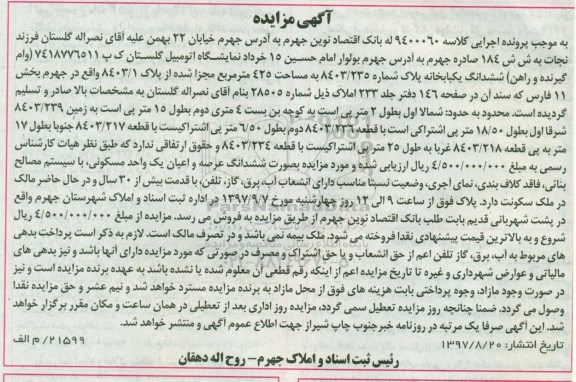 آگهی مزایده
به موجب پرونده اجرایی کلاسه ۹۴۰۰۰۶۰ له بانک اقتصاد نوین جهرم به آدرس جهرم خیابان ۲۲ بهمن علیه آقای نصراله گلستان فرزند
نجات به ش ش ۱۸۴ صادره جهرم به آدرس جهرم بولوار امام حسین ۱۵ خرداد نمایشگاه اتومبیل گلستان ک پ ۷۴۱۸۷۷۶۵۱۱ (وام
گیرنده و راهن) ششدانگ یکبابخانه پلاک شماره ۸۴۰۳/۲۳۵ به مساحت ۴۲۵ مترمربع مجزا شده از پلاک ۸۴۰۳/۱ واقع در جهرم بخش
۱۱ فارس که سند آن در صفحه ۱۴۶ دفتر جلد ۲۳۳ املاک ذیل شماره ۲۸۵۰۵ بنام آقای نصراله گلستان به مشخصات بالا صادر و تسلیم
گردیده است. محدود به حدود: شمالا اول بطول ۲ متر پی است به کوچه بن بست ۴ متری دوم بطول ۱۵ متر پی است به زمین ۸۴۰۳/۲۳۹
شرقا اول بطول ۱۸/۵۰ متر پی اشتراکی است با قطعه ۸۴۰۳/۲ دوم بطول ۶/۵۰ متر پی اشتراکیست با قطعه ۸۴۰۳/۲۱۷ جنوبا بطول ۱۷
متر به پی قطعه ۸۴۰۳/۲۱۸ غربا به طول ۲۵ متر پی اشتراکیست با قطعه ۸۴۰۳/۲۳۴ و حقوق ارتفاقی ندارد که طبق نظر هیات کارشناس
رسمی به مبلغ ۴/۵۰۰/۰۰۰/۰۰۰ ریال ارزیابی شده و مورد مزایده بصورت ششدانگ عرصه و اعیان یک واحد مسکونی، با سیستم مصالح
بنائی، فاقد کلاف بندی، نمای آجری، وضعیت نسبتا مناسب دارای انشعاب آب، برق، گاز، تلفن، با قدمت بیش از ۳۰ سال و در حال حاضر مالک
در ملک سکونت دارد. پلاک فوق از ساعت ۹ الی ۱۲ روز چهارشنبه مورخ ۱۳۹۷/۹/۷ در اداره ثبت اسناد و املاک شهرستان جهرم واقع
در پشت شهربانی قدیم بابت طلب بانک اقتصاد نوین جهرم از طریق مزایده به فروش می رسد. مزایده از مبلغ ۴/۵۰۰/۰۰۰/۰۰۰ ریال
شروع و به بالاترین قیمت پیشنهادی نقدا فروخته می شود. ملک بیمه نمی باشد و در تصرف مالک است. لازم به ذکر است پرداخت بدهی
های مربوط به آب، برق، گاز تلفن اعم از حق انشعاب و یا حق اشتراک و مصرف در صورتی که مورد مزایده دارای آنها باشد و نیز بدهی های
مالیاتی و عوارض شهرداری و غیره تا تاریخ مزایده اعم از اینکه رقم قطعی آن معلوم شده یا نشده باشد به عهده برنده مزایده است و نیز
در صورت وجود مازاد، وجوه پرداختی بابت هزینه های فوق از محل مازاد به برنده مزایده مسترد خواهد شد و نیم عشر و حق مزایده نقدا
وصول می گردد. ضمنا چنانچه روز مزایده تعطیل رسمی گردد، مزایده روز اداری بعد از تعطیلی در همان ساعت و مکان مقرر برگزار خواهد
شد. این آگهی صرفا یک مرتبه در روزنامه خبرجنوب چاپ شیراز جهت اطلاع عموم آگهی و منتشر خواهد شد.
تاریخ انتشار: ۱۳۹۷/۸/۲۰ ۲۱۵۹۹/م الف
رئیس ثبت اسناد و املاک جهرم – روح اله دهقان